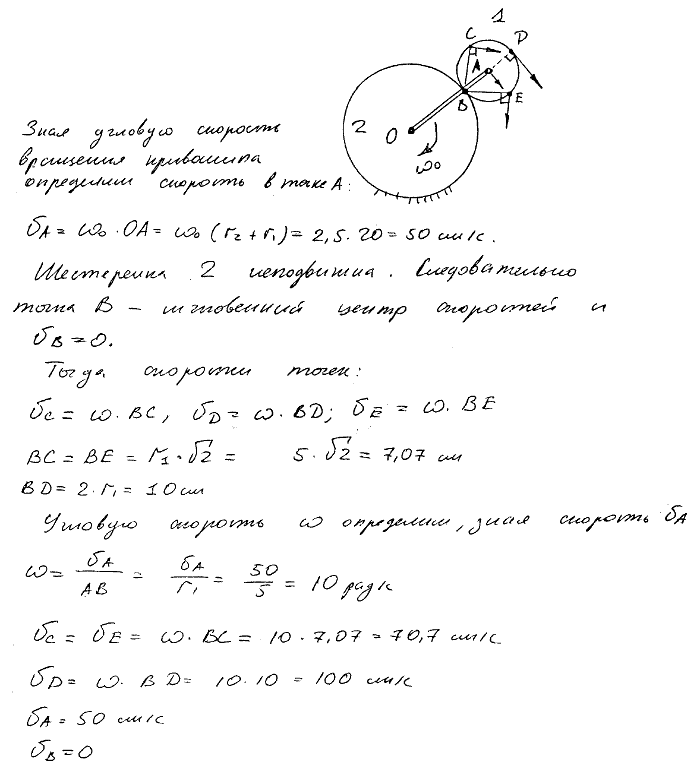 1
C
D
A
B
E
2
O
ω₀
Зная угловую скорость
вращения кривошипа
определим скорость в точке A:
υA = ω₀ · OA = ω₀ (r₂ + r₁) = 2,5 · 20 = 50 см/с.
Шестеренка 2 неподвижна. Следовательно
точка B – мгновенный центр скоростей и
υB = 0.
Тогда скорости точек:
υC = ω · BC, υD = ω · BD; υE = ω · BE
BC = BE = r₁ · √2 = 5 · √2 = 7,07 см
BD = 2 · r₁ = 10 см
Угловую скорость ω определим, зная скорость υA
ω = υA/AB = υA/r₁ = 50/5 = 10 рад/с
υC = υE = ω · BC = 10 · 7,07 = 70,7 см/с
υD = ω · BD = 10 · 10 = 100 см/с
υA = 50 см/с
υB = 0